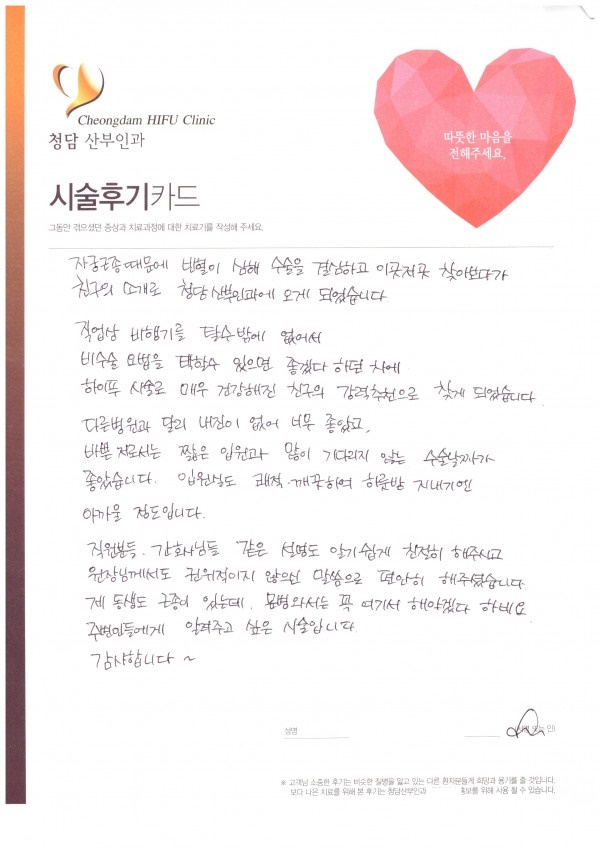 Cheongdam HIFU Clinic
청담 산부인과
따뜻한 마음을
전해주세요.
시술후기카드
그동안 겪으셨던 증상과 치료과정에 대한 치료기를 작성해 주세요.
자궁근종때문에 빈혈이 심해 수술을 결심하고 이곳저곳 찾아보다가
친구의 소개로 청담산부인과에 오게 되었습니다
직업상 비행기를 탈수밖에 없어서
비수술 요법을 택할수 있으면 좋겠다 하던 차에
하이푸 시술로 매우 건강해진 친구의 강력추천으로 찾게 되었습니다
다른병원과 달리 내진이 없어 너무 좋았고,
바쁜 저로서는 짧은 입원과 많이 기다리지 않는 수술날짜가
좋았습니다. 입원실도 쾌적·깨끗하여 하룻밤 지내기엔
아까울 정도입니다.
직원분들, 간호사님들 같은 설명도 알기쉽게 친절히 해주시고
원장님께서도 권위적이지 않으신 말씀으로 편안히 해주셨습니다.
제 동생도 근종이 있는데, 문병와서는 꼭 여기서 해야겠다 하네요
주변인들에게 알려주고 싶은 시술입니다
감사합니다 ~
성명
인)
※ 고객님 소중한 후기는 비슷한 질병을 앓고 있는 다른 환자분들게 희망과 용기를 줄 것입니다.
보다 나은 치료를 위해 본 후기는 청담산부인과 홍보를 위해 사용 될 수 있습니다.